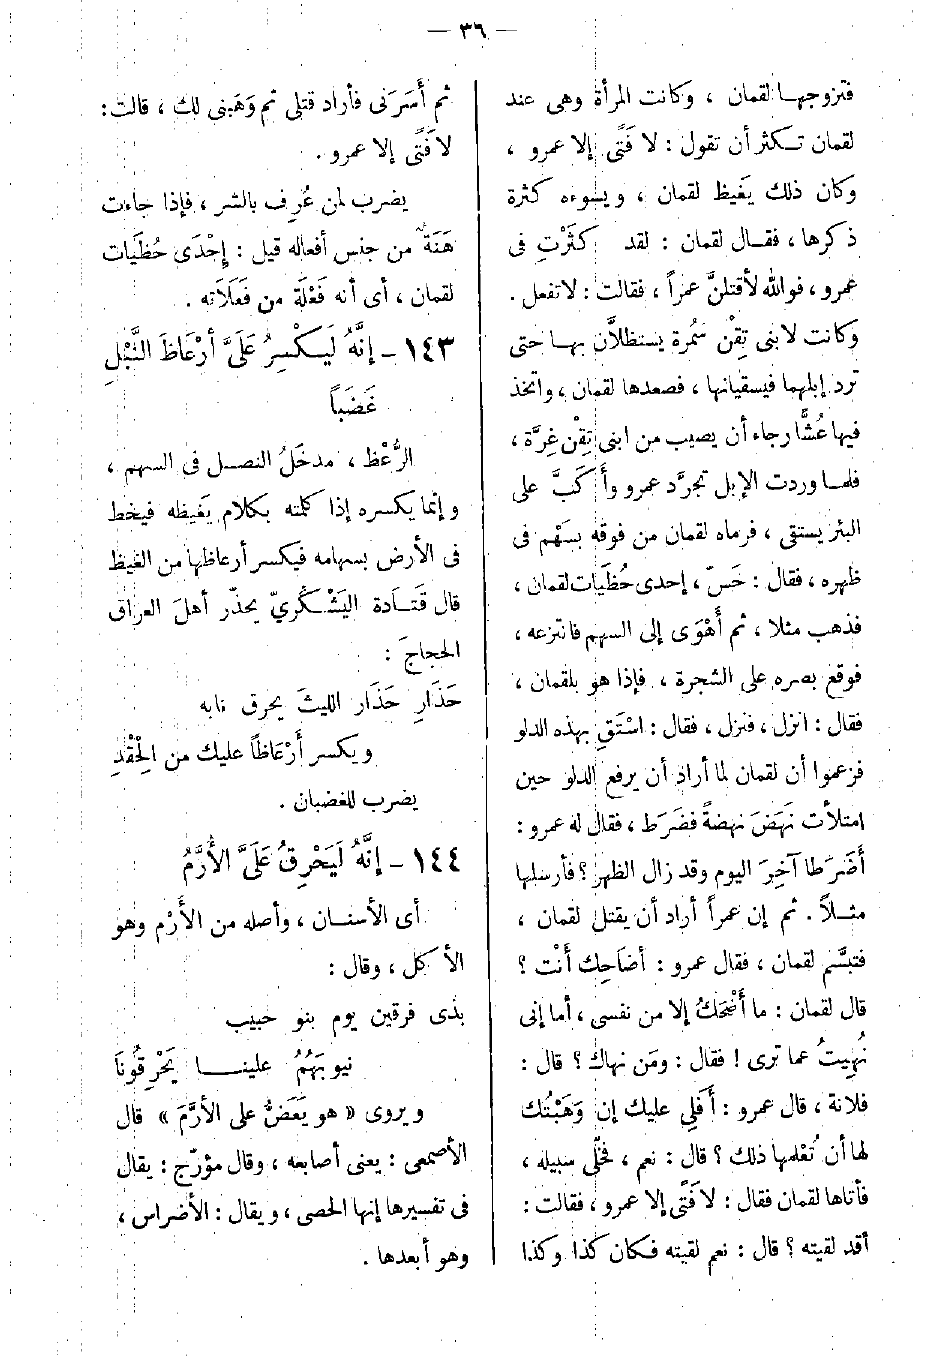 — ٣٦ —
فتزوجهـا لقمان ، وكانت المرأة وهى عند
لقمان تـكثر أن تقول : لا فَتًى إلا عمرو ،
وكان ذلك يَغيظ لقمان ، ويسوءه كثرة
ذكرها ، فقـال لقمان : لقد كثَرْتِ فى
عمرو ، فوالله لأقتلنَّ عمراً ، فقالت : لاتفعل .
وكانت لابنى تِقْن سَمُرة يستظلاَّن بهـا حتى
ترد إبلهما فيسقيانها ، فصعدها لقمان ، واتخذ
فيها عُشًّا رجاء أن يصيب من ابنى تِقْن غِرَّة ،
فلمـا وردت الإبل تجرَّد عمرو وأكَبَّ على
البئر يستقى ، فرماه لقمان من فوقه بسَهْم فى
ظهره ، فقال : حَسِّ ، إحدى حُظَيَّات لقمان ،
فذهب مثلا ، ثم أَهْوَى إلى السهم فانتزعه ،
فوقع بصره على الشجرة ، فإذا هو بلقمان ،
فقال : انزل ، فنزل ، فقال : اسْتَقِ بهذه الدلو
فزعموا أن لقمان لما أراد أن يرفع الدلو حين
امتلأت نَهَضَ نهضةً فضَرَط ، فقال له عمرو :
أَضَرَطا آخِرَ اليوم وقد زال الظهر ؟ فأرسلها
مثـلاً . ثم إن عمراً أراد أن يقتل لقمان ،
فتبسَّم لقمان ، فقال عمرو : أضاحِك أنْت ؟
قال لقمان : ما أَضْحَكُ إلا من نفسى ، أما إنى
نُهِيتُ عما ترى ! فقال : ومَن نهاك ؟ قال :
فلانة ، قال عمرو : أَفَلِى عليك إن وَهَبْتُك
لها أن تُعْلمها ذلك ؟ قال : نعم ، فخلَّى سبيله ،
فأتاها لقمان فقال : لا فَتًى إلا عمرو ، فقالت :
أقد لقيته ؟ قال : نعم لقيته فـكان كذا وكذا
ثم أَسَرَنى فأراد قتلى ثم وَهَبنى لك ، قالت :
لا فَتًى إلا عمرو .
يضرب لمن عُرِف بالشر ، فإذا جاءت
هَنَةٌ من جنس أفعاله قيل : إِحْدَى حُظَيَّات
لقمان ، أى أنه فَعْلَة من فَعَلاته .
١٤٣ - إنَّهُ لَيَـكْسِرُ عَلَىَّ أرْعَاظَ النَّبْلِ
غَضَباً
الرُّعْظ ، مدخَلُ النصـل فى السهم ،
وإنما يكسره إذا كلمته بكلام يَغيظه فيخط
فى الأرض بسهامه فيكسر أرعاظها من الغيظ
قال قَتـَادة اليَشْـكُرِيّ يحذّر أهلَ العراق
الحجاجَ :
حَذَارِ حَذَار الليثَ يحرق نابه
ويكسر أَرْعَاظاً عليك من الْحِقْدِ
يضرب للغضبان .
١٤٤ - إنَّهُ لَيَحْرِقُ عَلَىَّ الأُرَّمَ
أى الأسنـان ، وأصله من الأَرْم وهو
الأكل ، وقال :
بذى فرقين يوم بنو حبيب
نيوبَهُمُ علينـــا يَحْرِقُونَا
ويروى « هو يَعَضُّ على الأُرَّمَ » قال
الأصمعى : يعنى أصابعه ، وقال مؤرّج : يقال
فى تفسيرها إنها الحصى ، ويقال : الأضراس ،
وهو أبعدها .